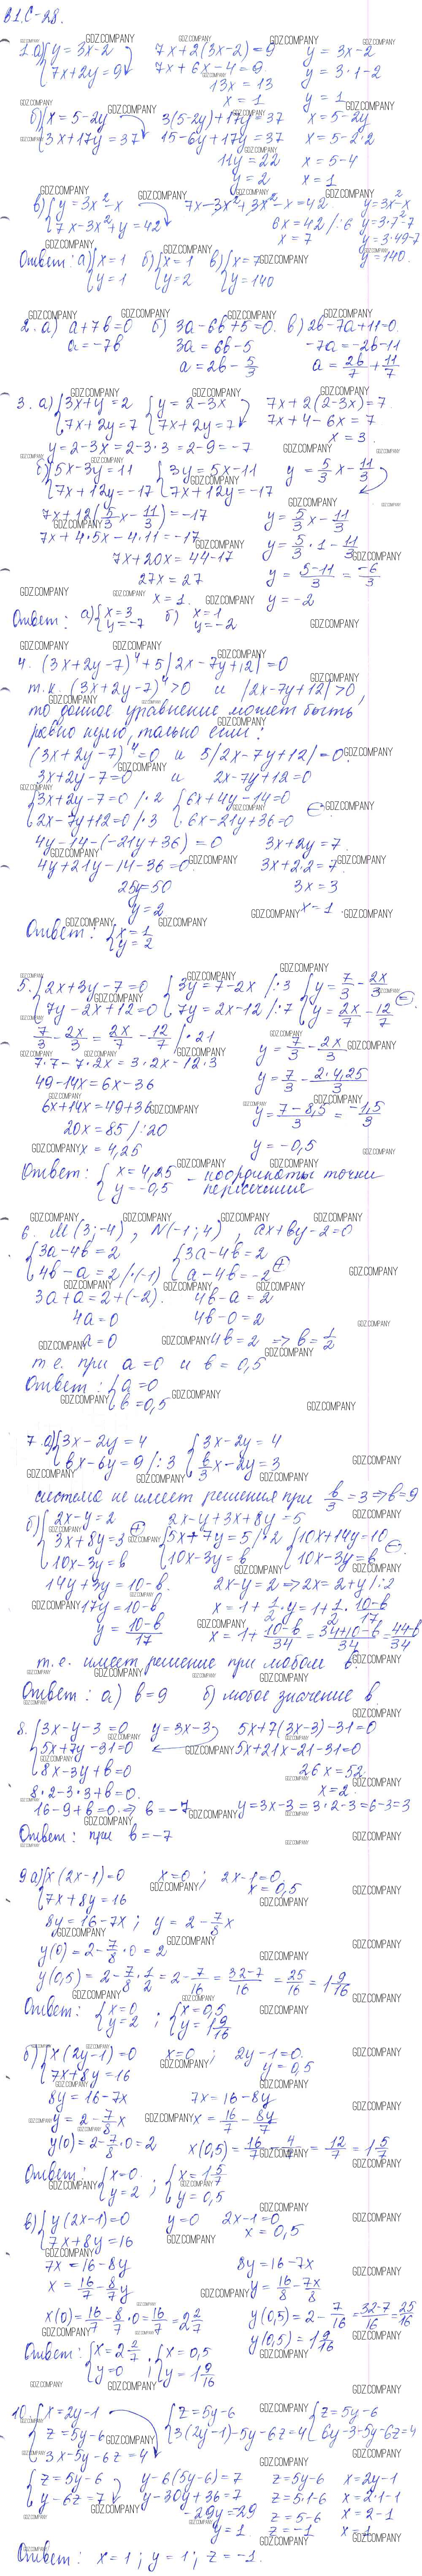 В1. С-28.
1. а) { y = 3x - 2   7x + 2(3x-2) = 9   y = 3x - 2
{ 7x + 2y = 9   7x + 6x - 4 = 9   y = 3·1 - 2
13x = 13   y = 1
x = 1
б) { x = 5 - 2y   3(5-2y) + 17y = 37   x = 5 - 2y
{ 3x + 17y = 37   15 - 6y + 17y = 37   x = 5 - 2·2
11y = 22   x = 5 - 4
y = 2   x = 1
в) { y = 3x² - x   7x - 3x² + 3x² - x = 42   y = 3x² - x
{ 7x - 3x² + y = 42   6x = 42 /:6   y = 3·7² - 7
x = 7   y = 3·49 - 7
y = 140.
Ответ: а) { x = 1   б) { x = 1   в) { x = 7
{ y = 1   { y = 2   { y = 140
2. а) a + 7b = 0   б) 3a - 6b + 5 = 0.   в) 2b - 7a + 11 = 0.
a = -7b   3a = 6b - 5   -7a = -2b - 11
a = 2b - 5/3   a = 2b/7 + 11/7
3. а) { 3x + y = 2   { y = 2 - 3x   7x + 2(2-3x) = 7
{ 7x + 2y = 7   { 7x + 2y = 7   7x + 4 - 6x = 7
x = 3
y = 2 - 3x = 2 - 3·3 = 2 - 9 = -7
б) { 5x - 3y = 11   { 3y = 5x - 11   y = 5/3 x - 11/3
{ 7x + 12y = -17   { 7x + 12y = -17
7x + 12(5/3 x - 11/3) = -17   y = 5/3 x - 11/3
7x + 4·5x - 4·11 = -17   y = 5/3 · 1 - 11/3
7x + 20x = 44 - 17   y = 5-11/3 = -6/3
27x = 27
x = 1.   y = -2
Ответ: а) { x = 3   б) { x = 1
{ y = -7   { y = -2
4. (3x + 2y - 7)⁴ + 5|2x - 7y + 12| = 0
т.к. (3x + 2y - 7)⁴ > 0 и |2x - 7y + 12| > 0,
то данное уравнение может быть
равно нулю, только если:
(3x + 2y - 7)⁴ = 0 и 5|2x - 7y + 12| = 0.
3x + 2y - 7 = 0   и   2x - 7y + 12 = 0
{ 3x + 2y - 7 = 0 /·2   { 6x + 4y - 14 = 0
{ 2x - 7y + 12 = 0 /·3   { 6x - 21y + 36 = 0   ⊖
4y - 14 - (-21y + 36) = 0   3x + 2y = 7.
4y + 21y - 14 - 36 = 0.   3x + 2·2 = 7.
25y = 50   3x = 3
y = 2   x = 1.
Ответ: { x = 1
{ y = 2
5. { 2x + 3y - 7 = 0   { 3y = 7 - 2x /:3   { y = 7/3 - 2x/3
{ 7y - 2x + 12 = 0   { 7y = 2x - 12 /:7   { y = 2x/7 - 12/7   ⊖
7/3 - 2x/3 = 2x/7 - 12/7 /·21   y = 7/3 - 2x/3
7·7 - 7·2x = 3·2x - 12·3
49 - 14x = 6x - 36   y = 7/3 - 2·4,25/3
6x + 14x = 49 + 36   y = 7-8,5/3 = -1,5/3
20x = 85 /:20
x = 4,25   y = -0,5
Ответ: { x = 4,25 - координаты точки
{ y = -0,5   пересечения
6. M(3;-4), N(-1;4), ax + by - 2 = 0
{ 3a - 4b = 2   { 3a - 4b = 2
{ 4b - a = 2 /·(-1)   { a - 4b = -2   ⊕
3a + a = 2 + (-2).   4b - a = 2
4a = 0   4b - 0 = 2
a = 0   4b = 2 ⇒ b = 1/2
т.е. при a = 0 и b = 0,5
Ответ: { a = 0
{ b = 0,5
7. а) { 3x - 2y = 4   { 3x - 2y = 4
{ bx - 6y = 9 /:3   { b/3 x - 2y = 3
система не имеет решения при b/3 = 3 ⇒ b = 9
б) { 2x - y = 2   2x - y + 3x + 8y = 5
{ 3x + 8y = 3   ⊕   { 5x + 7y = 5 /·2   { 10x + 14y = 10
{ 10x - 3y = b   { 10x - 3y = b   { 10x - 3y = b   ⊖
14y + 3y = 10 - b.   2x - y = 2 ⇒ 2x = 2 + y /:2
17y = 10 - b   x = 1 + 1/2·y = 1 + 1/2·10-b/17
y = 10-b/17   x = 1 + 10-b/34 = 34+10-b/34 = 44-b/34
т.е. имеет решение при любом b.
Ответ: а) b = 9   б) любое значение b
8. { 3x - y - 3 = 0   y = 3x - 3   5x + 7(3x-3) - 31 = 0
{ 5x + 7y - 31 = 0   5x + 21x - 21 - 31 = 0
{ 8x - 3y + b = 0   26x = 52.
8·2 - 3·3 + b = 0.   x = 2.
16 - 9 + b = 0 ⇒ b = -7   y = 3x - 3 = 3·2 - 3 = 6 - 3 = 3
Ответ: при b = -7
9 а) { x(2x-1) = 0   x = 0;   2x - 1 = 0
{ 7x + 8y = 16   x = 0,5
8y = 16 - 7x; y = 2 - 7/8 x
y(0) = 2 - 7/8 · 0 = 2
y(0,5) = 2 - 7/8 · 1/2 = 2 - 7/16 = 32-7/16 = 25/16 = 1 9/16
Ответ: { x = 0   ; { x = 0,5
{ y = 2   { y = 1 9/16
б) { x(2y-1) = 0   x = 0;   2y - 1 = 0.
{ 7x + 8y = 16   y = 0,5
8y = 16 - 7x   7x = 16 - 8y
y = 2 - 7/8 x   x = 16/7 - 8y/7
y(0) = 2 - 7/8 · 0 = 2   x(0,5) = 16/7 - 4/7 = 12/7 = 1 5/7
Ответ: { x = 0.   ; { x = 1 5/7
{ y = 2   { y = 0,5
в) { y(2x-1) = 0   y = 0   2x - 1 = 0
{ 7x + 8y = 16   x = 0,5
7x = 16 - 8y   8y = 16 - 7x
x = 16/7 - 8/7 y   y = 16/8 - 7x/8
x(0) = 16/7 - 8/7 · 0 = 16/7 = 2 2/7   y(0,5) = 2 - 7/16 = 32-7/16 = 25/16
y(0,5) = 1 9/16
Ответ: { x = 2 2/7   ; { x = 0,5
{ y = 0   { y = 1 9/16
10. { x = 2y - 1   { z = 5y - 6   { z = 5y - 6
{ z = 5y - 6   { 3(2y-1) - 5y - 6z = 4   { 6y - 3 - 5y - 6z = 4
{ 3x - 5y - 6z = 4
{ z = 5y - 6   y - 6(5y-6) = 7   z = 5y - 6   x = 2y - 1
{ y - 6z = 7   y - 30y + 36 = 7   z = 5·1 - 6   x = 2·1 - 1
-29y = -29   z = 5 - 6   x = 2 - 1
y = 1   z = -1   x = 1
Ответ: x = 1; y = 1; z = -1.
GDZ.COMPANY